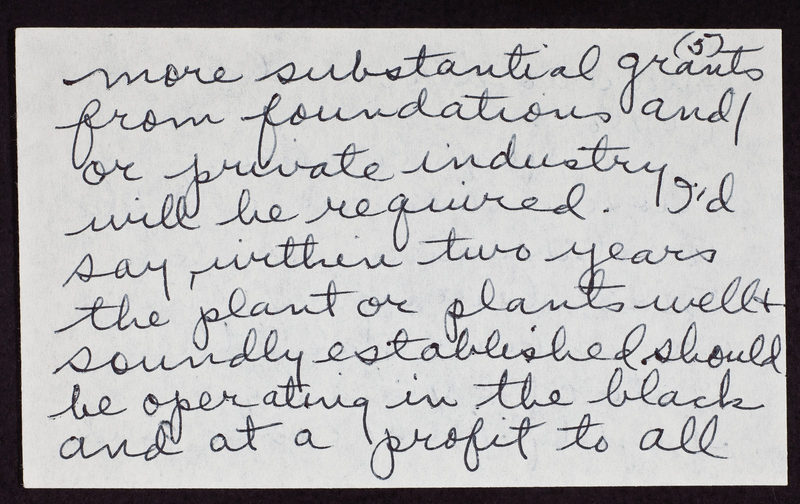 (5)
more substantial grants
from foundations and/
or private industry
will be required. I'd
say, within two years
the plant or plants well +
soundly established should
be operating in the black
and at a profit to all